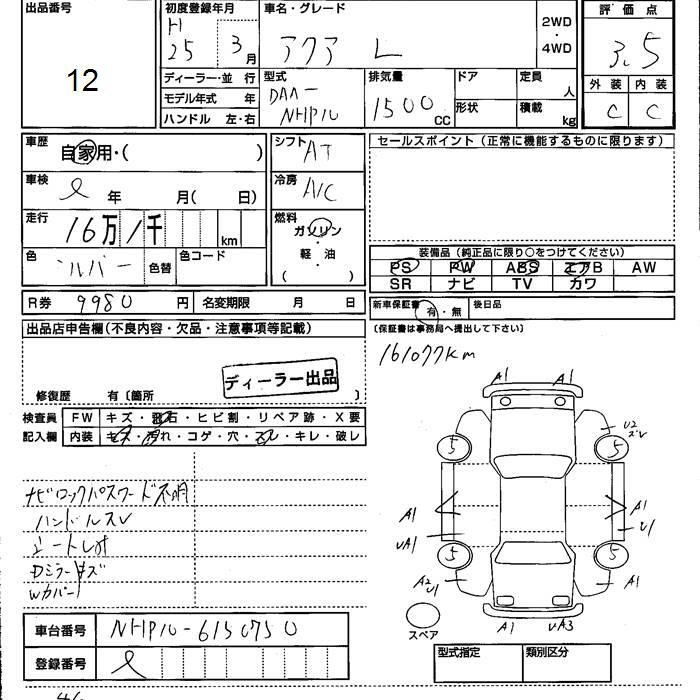 出品番号
12
初度登録年月
H
25 3月
車名・グレード
アクア L
2WD
・
4WD
評価点
3.5
外装 内装
C C
ディーラー・並行
モデル年式 年
ハンドル 左・右
型式
DAA-
NHP10
排気量
1500 CC
ドア
形状
定員 人
積載 kg
車歴
自家用・( )
車検
年 月( 日)
走行
16万1千 km
色
シルバー
色替
色コード
シフト
AT
冷房
A/C
燃料
ガソリン
・
軽・油
( )
セールスポイント(正常に機能するものに限ります)
装備品(純正品に限り○をつけてください)
PS PW ABS エアB AW
SR ナビ TV カワ
R券 9980 円 名変期限 月 日
新車保証書 有・無 後日品
(保証書は事務局へ提出して下さい)
出品店申告欄(不良内容・欠品・注意事項等記載)
ディーラー出品
修復歴 有〔箇所 〕
161077km
検査員
記入欄
FW キズ・飛石・ヒビ割・リペア跡・X要
内装 キズ・汚れ・コゲ・穴・スレ・キレ・破レ
ナビロックパスワード不明
ハンドルスレ
シートしみ
Dミラーキズ
Wカバー
A1 A1
5 5
U2
スレ
A1 A1
UA1 U1
5 5
A2
U1
A1
A1 UA3
スペア
車台番号 NHP10-6150750
登録番号
型式指定 類別区分